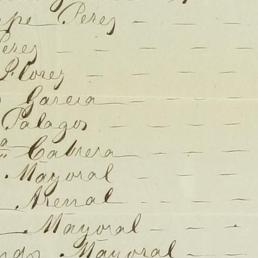 pe Perez
Perez
Florez
Garcia
Palagos
a Cabrera
Mayoral
Arenal
Mayoral
Mayoral